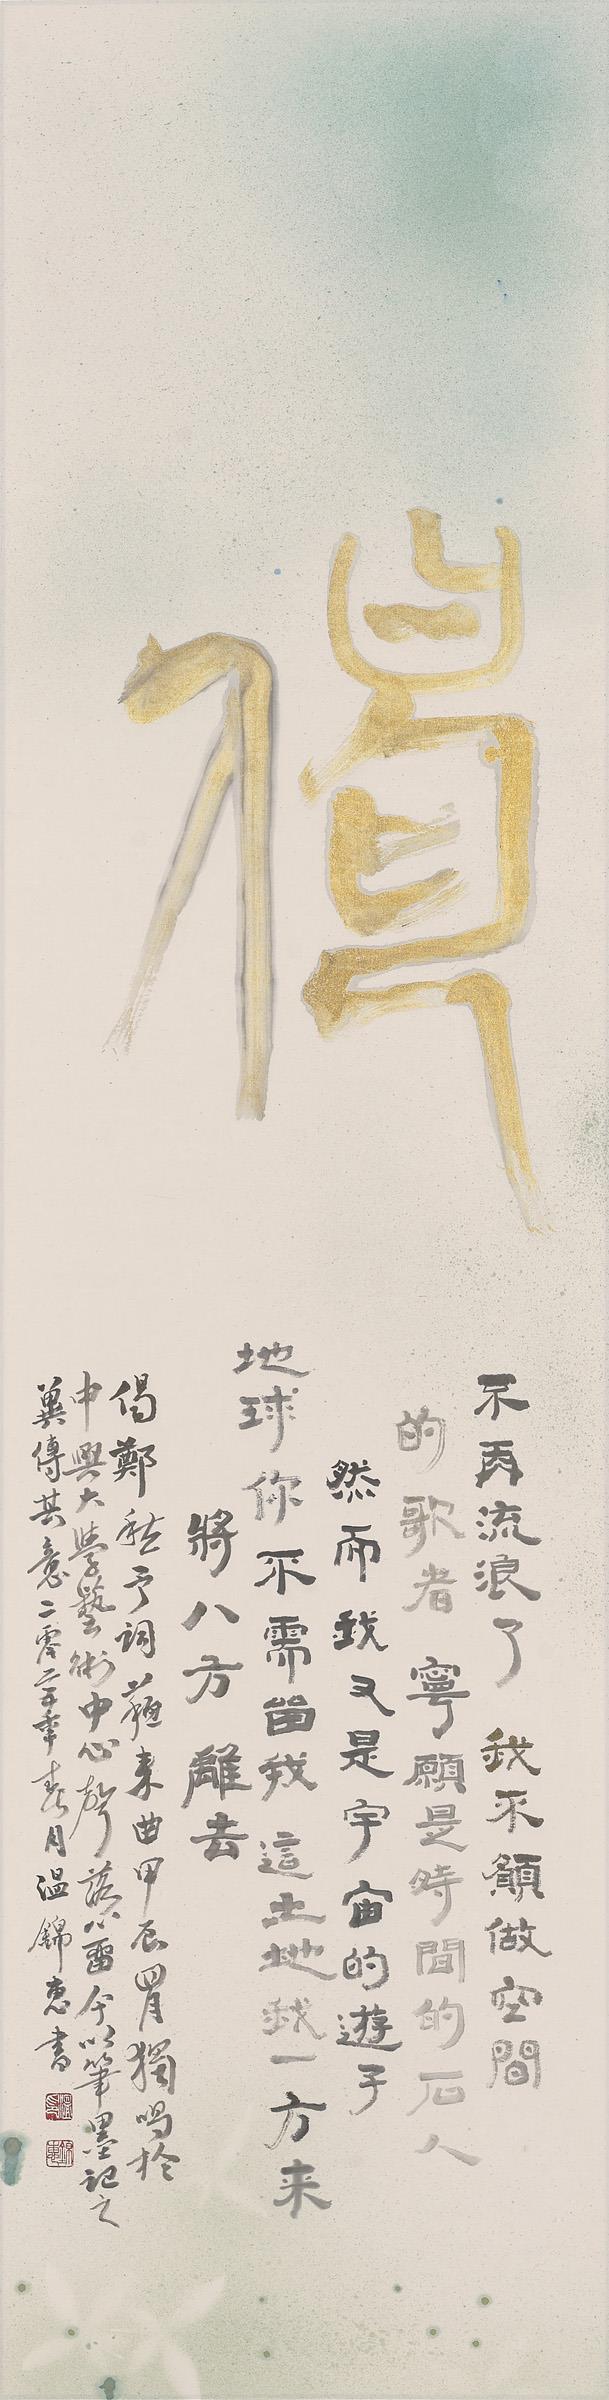 偈
不再流浪了 我不願做空間
的歌者 寧願是時間的石人
然而我又是宇宙的遊子
地球你不需留我 這土地我一方来
將八方 離去
偈鄭愁予詞蘇来曲甲辰四月獨唱於
中興大學藝術中心聲落雷今以筆墨記之
冀傳其意二零二五年春月温錦惠書